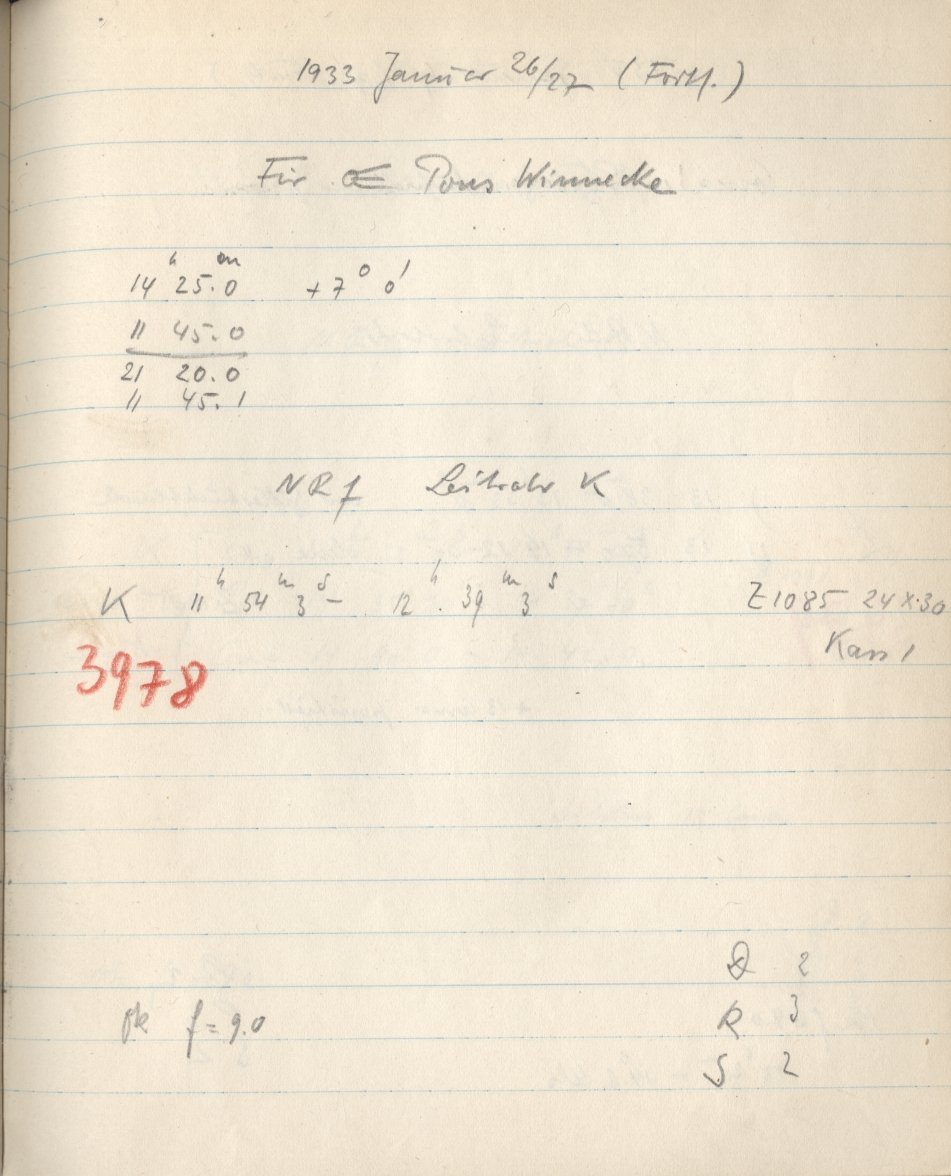 1933 Januar 26/27 (Forts.)
Für ☄ Pons Winnecke
14ʰ 25.0ᵐ +7° 0'
11 45.0
21 20.0
11 45.1
NR f Leitrohr K
K 11ʰ 54ᵐ 3ˢ – 12ʰ 39ᵐ 3ˢ Z1085 24 X.30
Kass 1
3978
D 2
pk f = 9.0 R 3
S 2